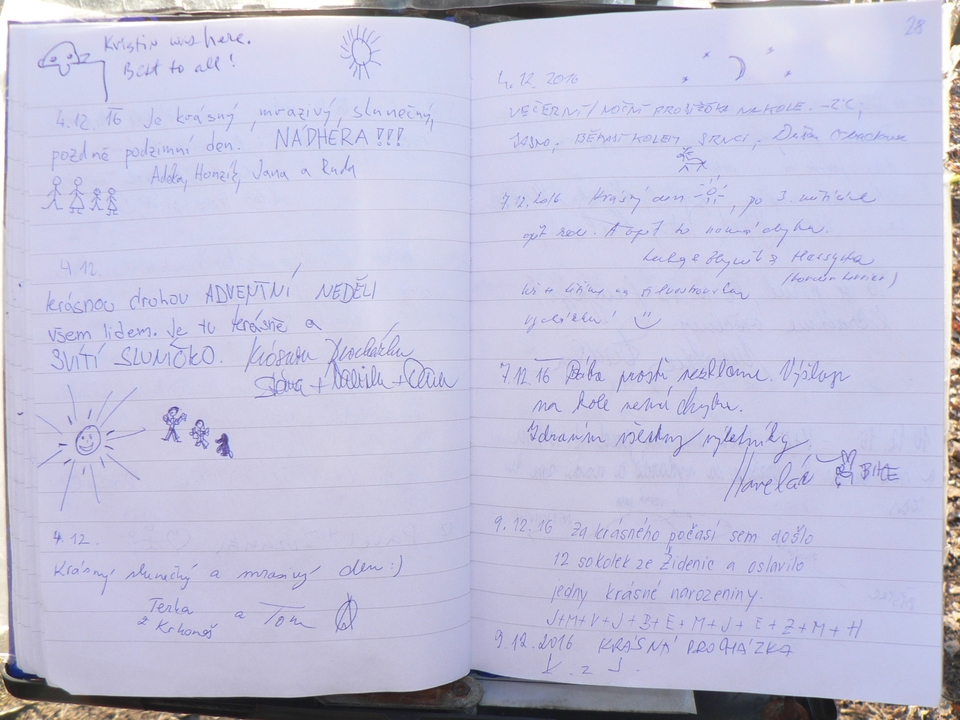 Kristin was here.
Best to all!
4.12. 16 Je krásný, mrazivý, slunečný,
pozdně podzimní den. NÁDHERA!!!
Adélka, Honzík, Jana a Ruda
4.12.
krásnou druhou ADVENTNÍ NEDĚLI
všem lidem. Je tu krásně a
SVÍTÍ SLUNÍČKO. Krásnou procházku
4.12.
Krásný slunečný a mrazivý den :)
Terka a Tom
z Krkonoš
28
4.12. 2016
VEČERNÍ/NOČNÍ PROJÍŽĎKA NA KOLE. -2°C,
JASNO, BĚHAJÍ KOLEM SRNCI,
7.12.2016 Krásný den , po 3.
opět zde. A opět to nemá chybu.
7.12.16 prostě nezklame. Výšlap
na kole nemá chybu.
Zdravím všechny výletníky
BIKE
9.12.16 Za krásného počasí sem došlo
12 sokolek ze Židenic a oslavilo
jedny krásné narozeniny.
J+M+V+J+B+E+M+J+E+Z+M+H
9.12.2016 KRÁSNÁ PROCHÁZKA